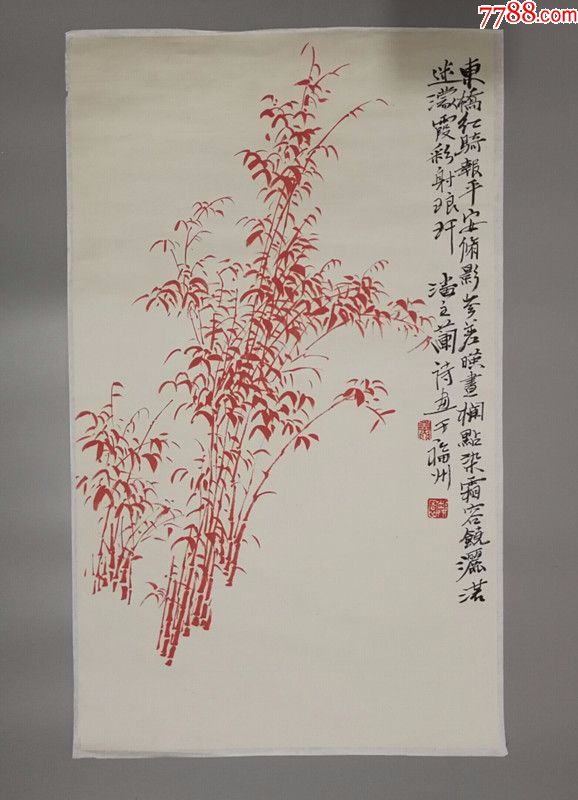 7788.com
東橋紅騎報平安脩影參差暎畫欄點染霜容饒灑落
迷濛霞彩射琅玕 潘主蘭詩畫于福州